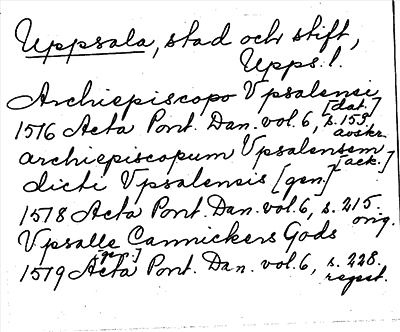 Uppsala, stad och stift,
Upps. l.
Archiepiscopo Vpsalensi
[dat.]
1516 Acta Pont. Dan. vol. 6, s. 159,
avskr.
archiepiscopum Vpsalensem
[ack.]
dicti Vpsalensis [gen.]
1518 Acta Pont. Dan. vol. 6, s. 215.
orig.
Vpsalle Cannickers Gods
[gen.]
1519 Acta Pont. Dan. vol. 6, s. 228.
regest.